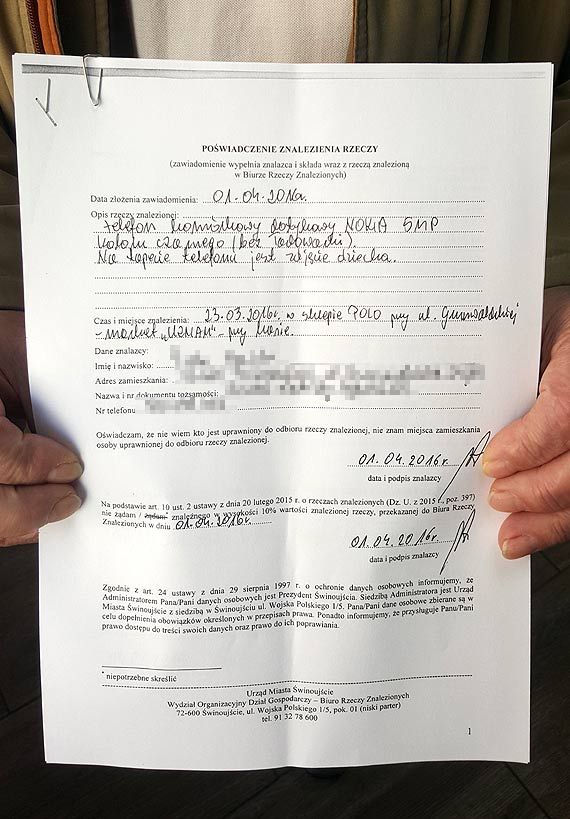 POŚWIADCZENIE ZNALEZIENIA RZECZY
(zawiadomienie wypełnia znalazca i składa wraz z rzeczą znalezioną
w Biurze Rzeczy Znalezionych)
Data złożenia zawiadomienia: 01.04.2016r.
Opis rzeczy znalezionej:
telefon komórkowy dotykowy NOKIA 5MP
koloru czarnego (bez ładowarki).
Na tapecie telefonu jest zdjęcie dziecka.
Czas i miejsce znalezienia: 23.03.2016r. w sklepie POLO przy ul. Grunwaldzkiej
- market "UZNAM" - przy kasie.
Dane znalazcy:
Imię i nazwisko:
Adres zamieszkania:
Nazwa i nr dokumentu tożsamości:
Nr telefonu
Oświadczam, że nie wiem kto jest uprawniony do odbioru rzeczy znalezionej, nie znam miejsca zamieszkania
osoby uprawnionej do odbioru rzeczy znalezionej.
01.04.2016r.
data i podpis znalazcy
Na podstawie art. 10 ust. 2 ustawy z dnia 20 lutego 2015 r. o rzeczach znalezionych (Dz. U. z 2015 r., poz. 397)
nie żądam / żądam* znaleźnego w wysokości 10% wartości znalezionej rzeczy, przekazanej do Biura Rzeczy
Znalezionych w dniu 01.04.2016r.
01.04.2016r.
data i podpis znalazcy
Zgodnie z art. 24 ustawy z dnia 29 sierpnia 1997 r. o ochronie danych osobowych informujemy, że
Administratorem Pana/Pani danych osobowych jest Prezydent Świnoujścia. Siedzibą Administratora jest Urząd
Miasta Świnoujście z siedzibą w Świnoujściu ul. Wojska Polskiego 1/5. Pana/Pani dane osobowe zbierane są w
celu dopełnienia obowiązków określonych w przepisach prawa. Ponadto informujemy, że przysługuje Panu/Pani
prawo dostępu do treści swoich danych oraz prawo do ich poprawiania.
* niepotrzebne skreślić
Urząd Miasta Świnoujście
Wydział Organizacyjny Dział Gospodarczy – Biuro Rzeczy Znalezionych
72-600 Świnoujście, ul. Wojska Polskiego 1/5, pok. 01 (niski parter)
tel. 91 32 78 600
1